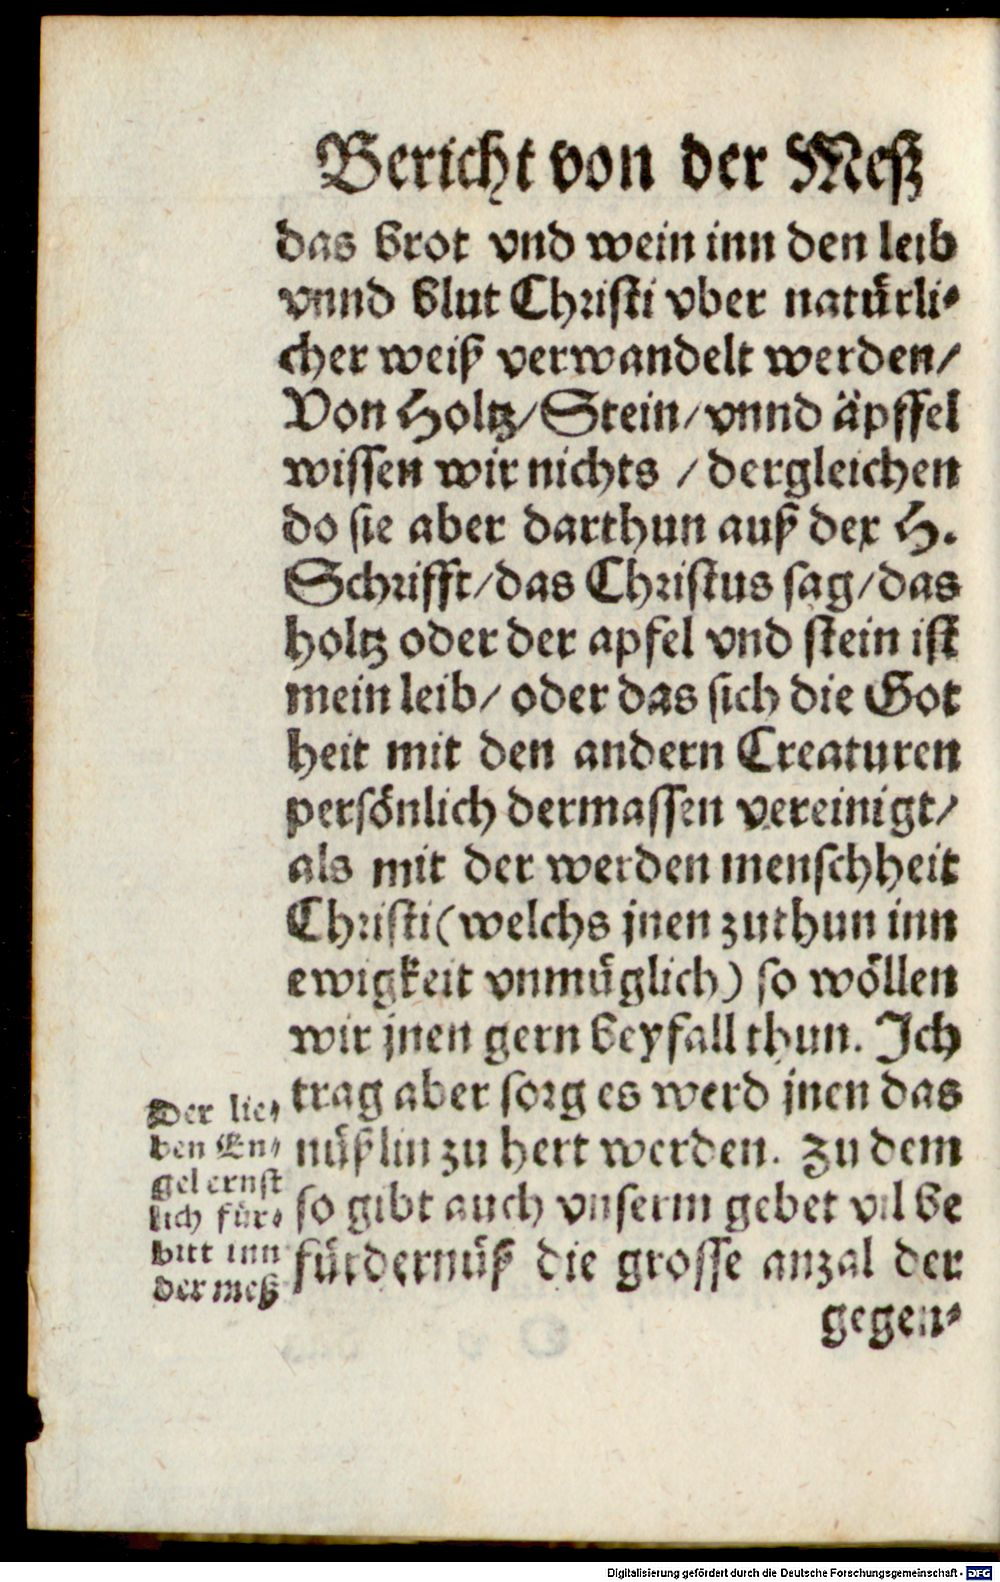 Bericht von der Meß
das brot vnd wein inn den leib
vnnd blut Christi vber natürli-
cher weiß verwandelt werden/
Von Holtz/Stein/vnnd äpffel
wissen wir nichts / dergleichen
do sie aber darthun auß der H.
Schrifft/das Christus sag/das
holtz oder der apfel vnd stein ist
mein leib/ oder das sich die Got
heit mit den andern Creaturen
persönlich dermassen vereinigt/
als mit der werden menschheit
Christi(welchs jnen zuthun inn
ewigkeit vnmüglich) so wöllen
wir jnen gern beyfall thun. Ich
trag aber sorg es werd jnen das
nüßlin zu hert werden. Zu dem
so gibt auch vnserm gebet vil be
fürdernüß die grosse anzal der
gegen-
Der lie-
ben En-
gel ernst
lich für-
bitt inn
der meß
Digitalisierung gefördert durch die Deutsche Forschungsgemeinschaft - DFG